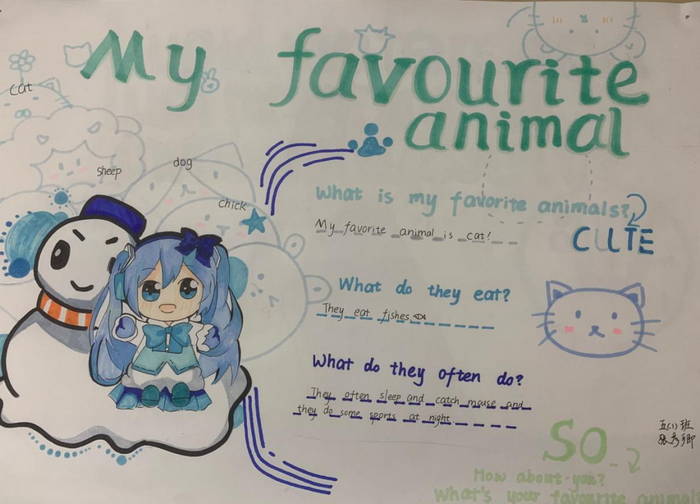 My favourite
animal
cat
sheep
dog
chick
What is my favorite animals?
My favorite animal is cat!
CUTE
What do they eat?
They eat fishes
What do they often do?
They often sleep and catch mouse and
they do some sports at night
SO
How about you?
What's your favorite animal
五(1)班